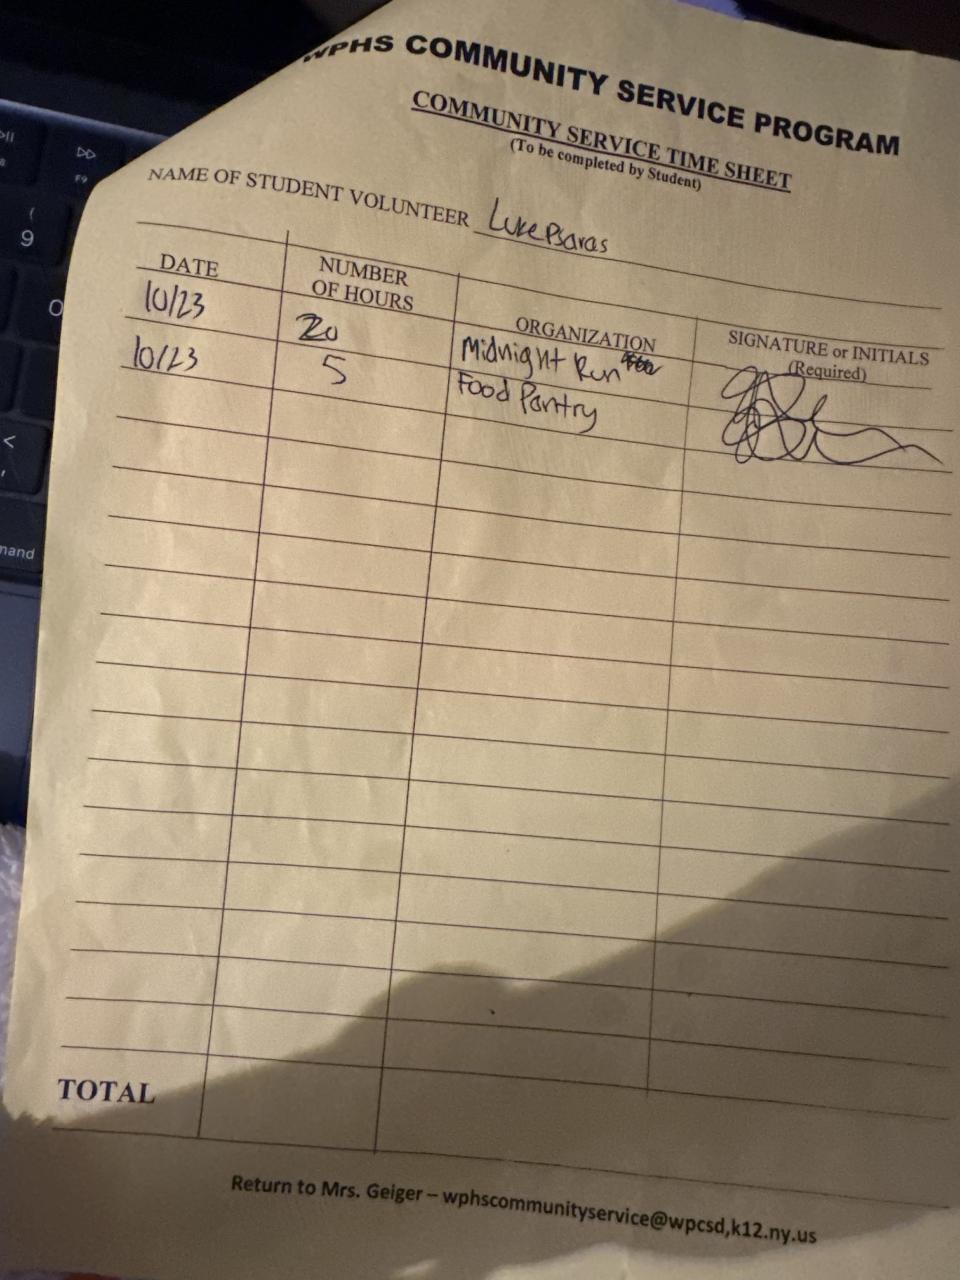 WPHS COMMUNITY SERVICE PROGRAM
COMMUNITY SERVICE TIME SHEET
(To be completed by Student)
NAME OF STUDENT VOLUNTEER Luke Psaras
DATE NUMBER OF HOURS ORGANIZATION SIGNATURE or INITIALS (Required)
10/23 20 Midnight Run
10/23 5 Food Pantry
TOTAL
Return to Mrs. Geiger – wphscommunityservice@wpcsd,k12.ny.us
F9
(
9
0
<
,
mand